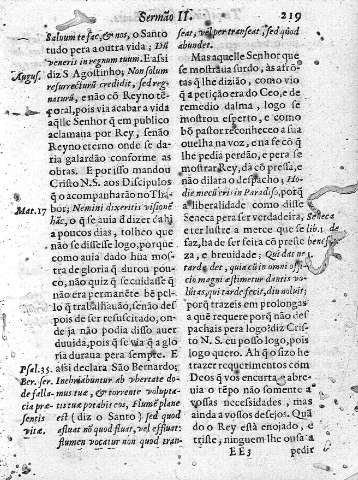 Sermão II.
219
Salvum te fac, & nos, o Santo
tudo pera a outra vida; Dũ
veneris in regnum tuum. E assi
Augus.
diz S Agostinho; Non solum
resurrecturũ credidit, sed reg-
naturũ, e não cõ Reyno tẽ-
poral, pois via acabar a vida
aq̃lle Senhor q̃ em publico
aclamana por Rey, senão
Reyno eterno onde se da-
ria galardão conforme as
obras. E por isso mandou
Cristo N.S. aos Discipulos
q̃ o acompanharão no Tha-
Mat.17
bor; Nemini dixeritis visionẽ
hãc, o q̃ se auia d dizer dahi
a poucos dias, tolheo que
não se dissesse logo, porque
como auia dado hũa mos-
tra de gloria q̃ durou pou-
co, não quiz q̃ se cuidasse q̃
não era permanẽte bẽ pel-
lo q̃ trabalhauão, senão des-
pois de ser resuscitado, on-
de ja não podia disso auer
duuida, pois q̃ se via q̃ a glo-
ria duraua pera sempre. E
Psal.35.
assi declara São Bernardo;
Ber. ser.
Inebriabuntur ab vbertate do-
de falla-
mus tuæ, & torrente volupta-
cia præ-
tis tuæ potabis eos, Flumẽ plane
sentis
est (diz o Santo) sed quod
vitæ.
afluat nõ quod fluat, vel effluat;
flumen vocatur non quod tran-
seat, vel pertranseat, sed quod
abundet.
Mas aquelle Senhor que
se mostraua surdo, às afrõ-
tas q̃ lhe dizião, como vio
q̃ a petição era do Ceo, e de
remedio dalma, logo se
mostrou esperto, e como
bõ pastor reconheceo a sua
ouelha na voz, e na fe cõ q̃
lhe pedia perdão, e pera se
mostrar Rey, da cõ pressa, e
não dilata o despacho; Ho-
die mecũ eris in Paradiso, porq̃
a liberalidade como disse
Seneca pera ser verdadeira,
Seneca
e ter lustre a merce que se
lib. 1. de
faz, ha de ser feita cõ pres-
benefi-
za, e breuidade; Qui dat ne
tarde det, quia cũ in omni offi-
cio magni æstimetur dantis vo-
lũtas, qui tarde fecit, diu noluit;
porq̃ trazeis em prolongas
a quẽ requere porq̃ não des-
pachais pera logo? diz Cris-
to N.S. eu posso logo, pois
logo quero. Ah q̃ o sizo he
trazer requerimentos com
Deos q̃ vos encurta e abre-
uia o tẽpo não somente a
vossas necessidades, mas
ainda a vossos desejos. Quã
do o Rey està enojado, e
triste, ninguem lhe ousa a
EE3
pedir